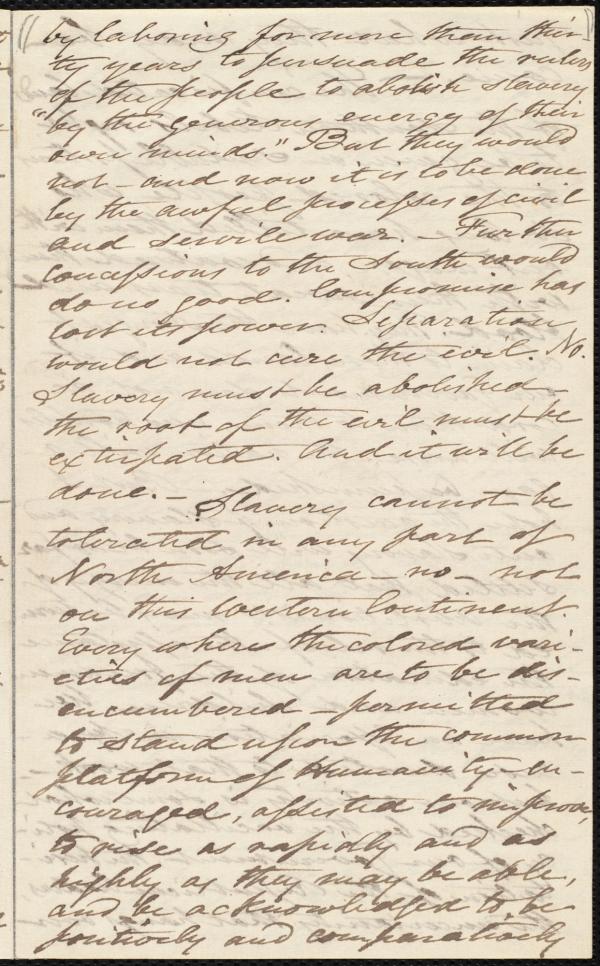 by laboring for more than thir-
ty years to persuade the rulers
of the people to abolish slavery
"by the generous energy of their
own minds." But they would
not - and now it is to be done
by the awful processes of civil
and servile war. - Further
concessions to the South would
do no good. Compromise has
lost its power. Separation
would not cure the evil. No.
Slavery must be abolished -
the root of the evil must be
extirpated. And it will be
done. - Slavery cannot be
tolerated in any part of
North America - no - not
on this Western Continent.
Every where the colored vari-
eties of men are to be dis-
encumbered - permitted
to stand upon the common
platform of Humanity - en-
couraged, assisted to improve,
to rise as rapidly and as
highly as they may be able,
and be acknowledged to be
positively and comparatively